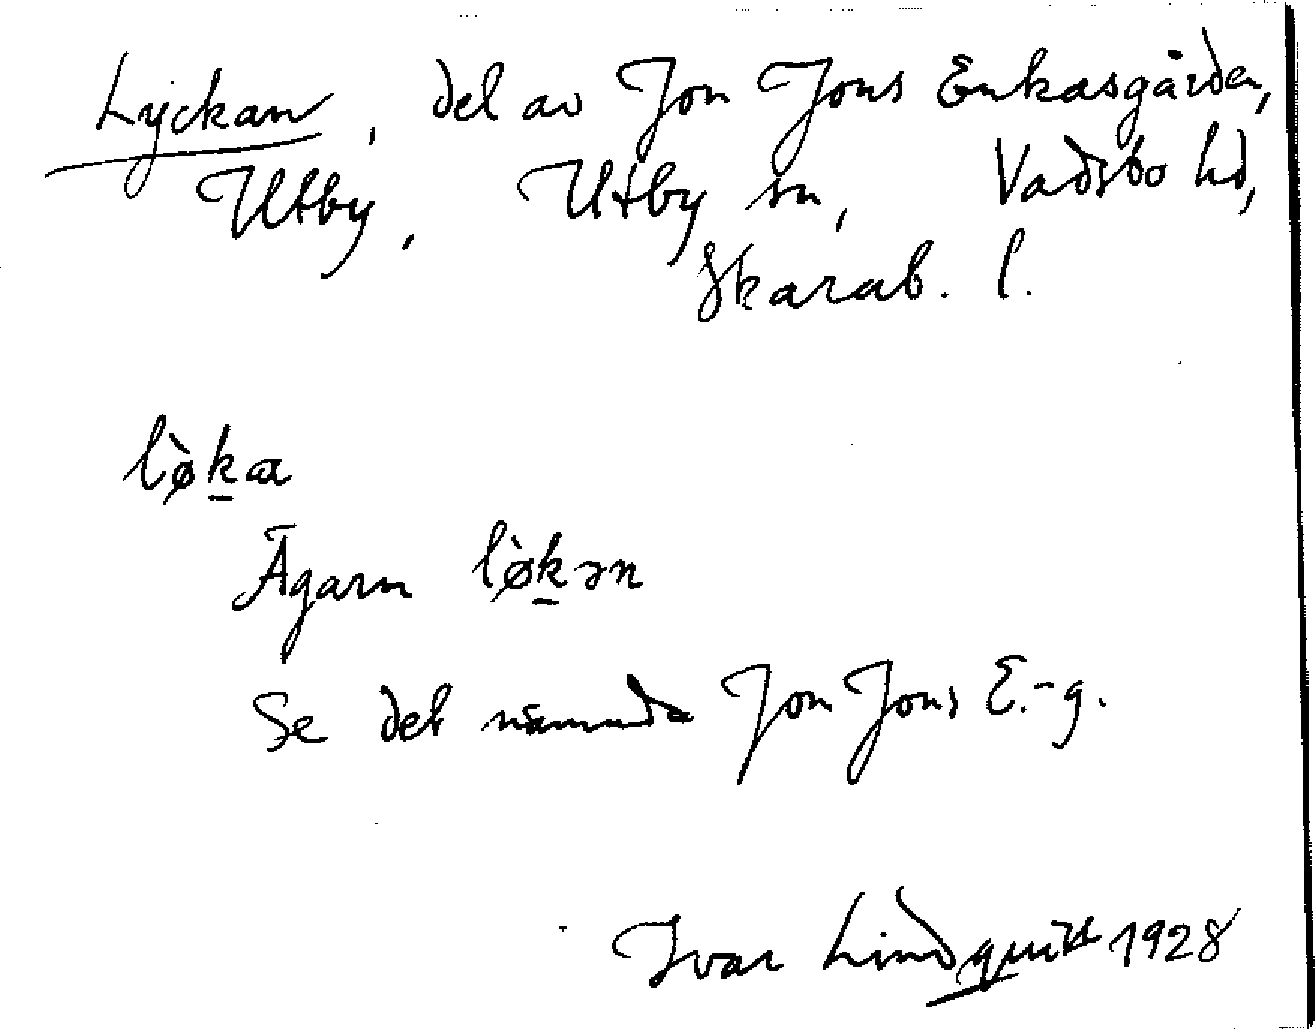 Lyckan, del av Jon Jons Enkasgården,
Utby, Utby sn, Vadsbo hd,
Skarab. l.
lø̀ḵa
Ägarn lø̀ḵən
Se det nämnda Jon Jons E.-g.
Ivar Lindquist 1928